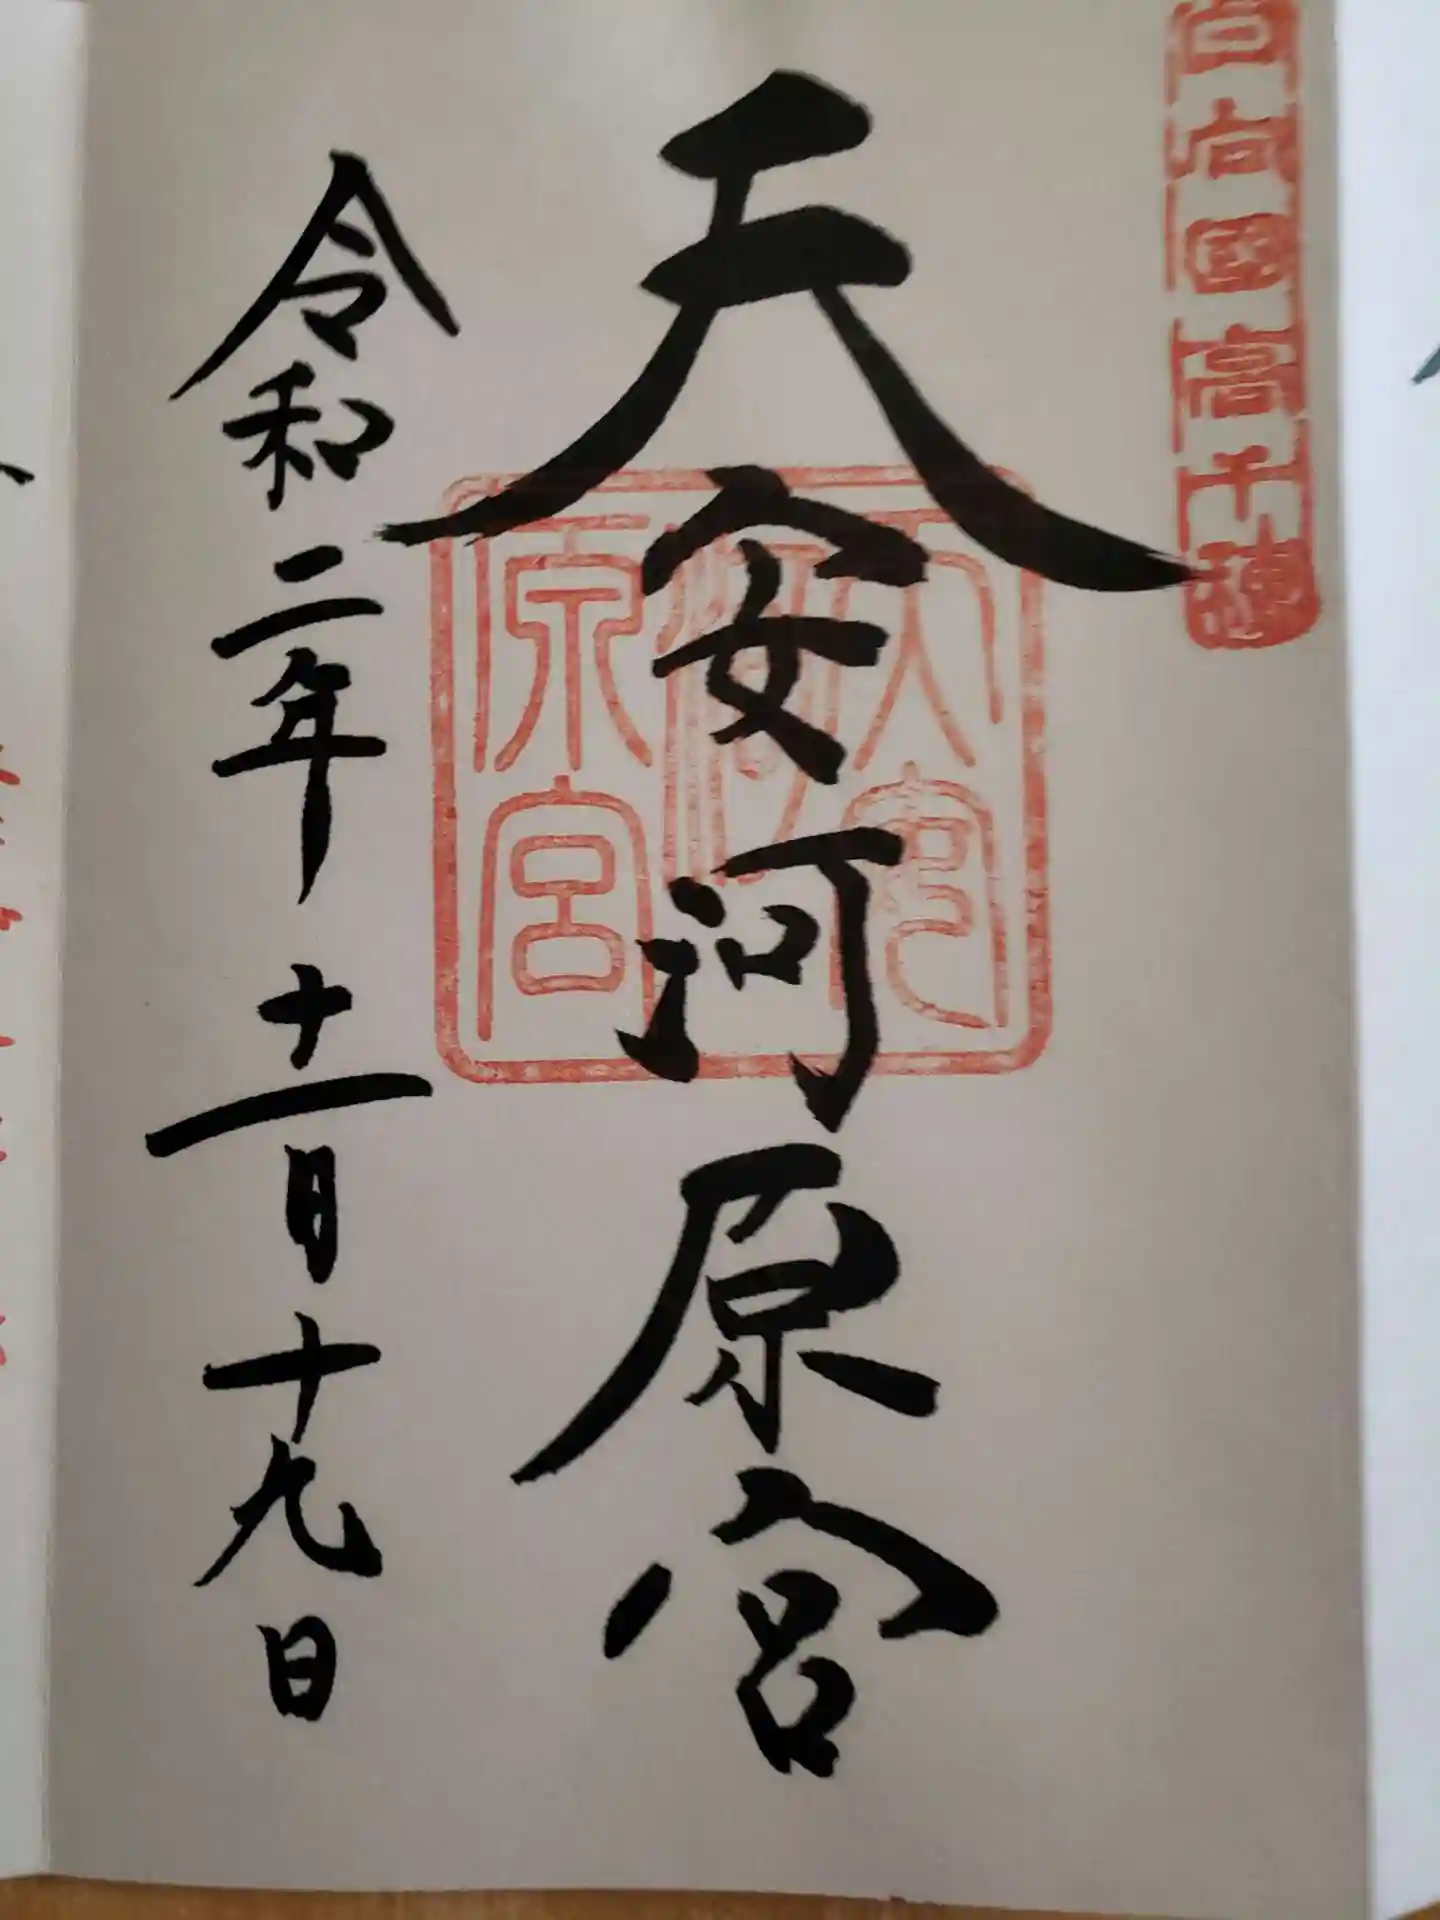 日向國高千穂
天安河原宮
天安河原宮
令和二年十一月十九日